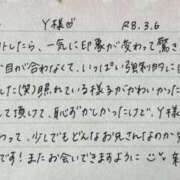 Y様 R8.3.6
トしたら、一気に印象が変わって驚き
お目が合わなくて、いっぱい強制的に
した(笑)照れている様子がかわいかった
して頂けて、恥ずかしかったけど、Y様
なって、少しでもどんなお兄さんなのか
です!またお会いできますように